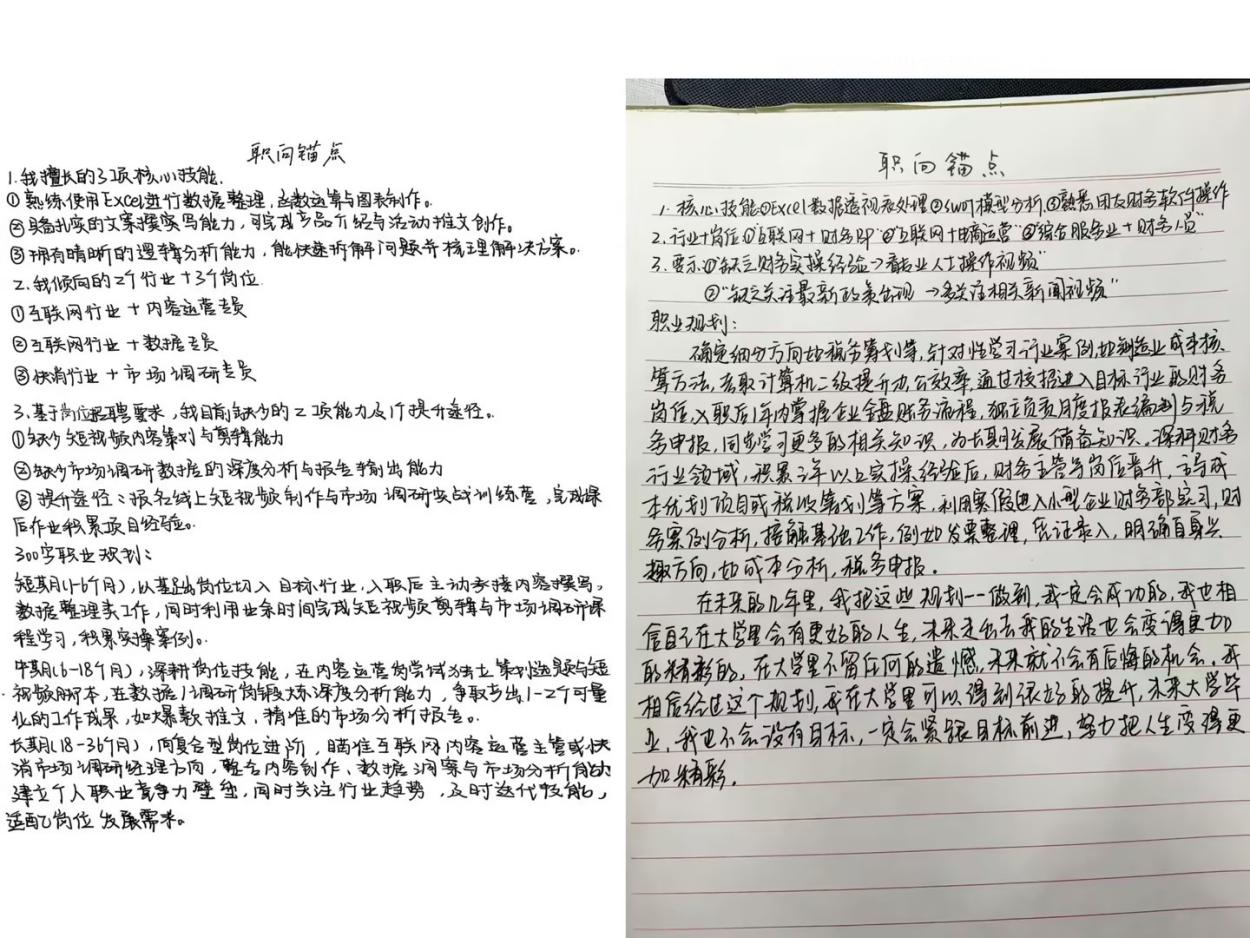 职向锚点
1.我擅长的3项核心技能.
①熟练使用Excel进行数据整理,函数运算与图表制作。
②具备扎实的文案撰写能力,可完成产品介绍与活动推文创作。
③拥有晴晰的逻辑分析能力,能快速拆解问题并梳理解决方案。
2.我倾向的2个行业+3个岗位
①互联网行业+内容运营专员
②互联网行业+数据专员
③快消行业+市场调研专员
3.基于岗位招聘要求,我目前缺少的2项能力及1个提升途径。
①缺少短视频内容策划与剪辑能力
②缺少市场调研数据的深度分析与报告输出能力
③提升途径:报名线上短视频制作与市场调研实战训练营,完成课
后作业积累项目经验。
300字职业规划:
短期(1-6个月),从基础岗位切入目标行业,入职后主动承接内容撰写,
数据整理类工作,同时利用业余时间完成短视频剪辑与市场调研课
程学习,积累实操案例。
中期(6-18个月),深耕岗位技能,在内容运营岗尝试独立策划选题与短
视频脚本,在数据/调研岗锻炼深度分析能力,争取产出1-2个可量
化的工作成果,如爆款推文,精准的市场分析报告。
长期(18-36个月),向复合型岗位进阶,瞄准互联网内容运营主管或快
消市场调研经理方向,整合内容创作、数据洞察与市场分析能力
建立个人职业竞争力壁垒,同时关注行业趋势,及时迭代技能,
适配岗位发展需求。
职向锚点
1.核心技能①Excel数据透视表处理②SWOT模型分析,③熟悉用友财务软件操作
2.行业+岗位①"互联网+财务BP"②"互联网+电商运营"③"综合服务业+财务人员"
3.要示①"缺乏财务实操经验→看专业人士操作视频"
②"缺乏关注最新政策出现→多关注相关新闻视频"
职业规划:
确定细分方向如税务筹划等,针对性学习行业案例,如制造业成本核
算方法,考取计算机二级提升办公效率,通过校招进入目标行业的财务
岗位,入职后1年内掌握企业全盘账务流程,独立负责月度报表编制与税
务申报,同步学习更多的相关知识,为长期发展储备知识。深耕财务
行业领域,积累3年以上实操经验后,财务主管等岗位晋升,主导成
本优划项目或税收筹划等方案,利用寒假进入小型企业财务部实习,财
务案例分析,接触基础工作,例如发票整理,凭证录入,明确自身兴
趣方向,如成本分析,税务申报.
在未来的几年里,我把这些规划一一做到,我一定会成功的,我也相
信自己在大学里会有更好的人生,未来走出去我的生活也会变得更加
的精彩的,在大学里不留任何的遗憾,未来就不会有后悔的机会.我
相信经过这个规划,我在大学里可以得到很好的提升,未来大学毕
业,我也不会没有目标,一定会紧跟目标前进,努力把人生变得更
加精彩.